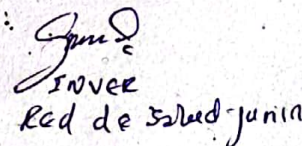 INVER
Red de Salud-Junin